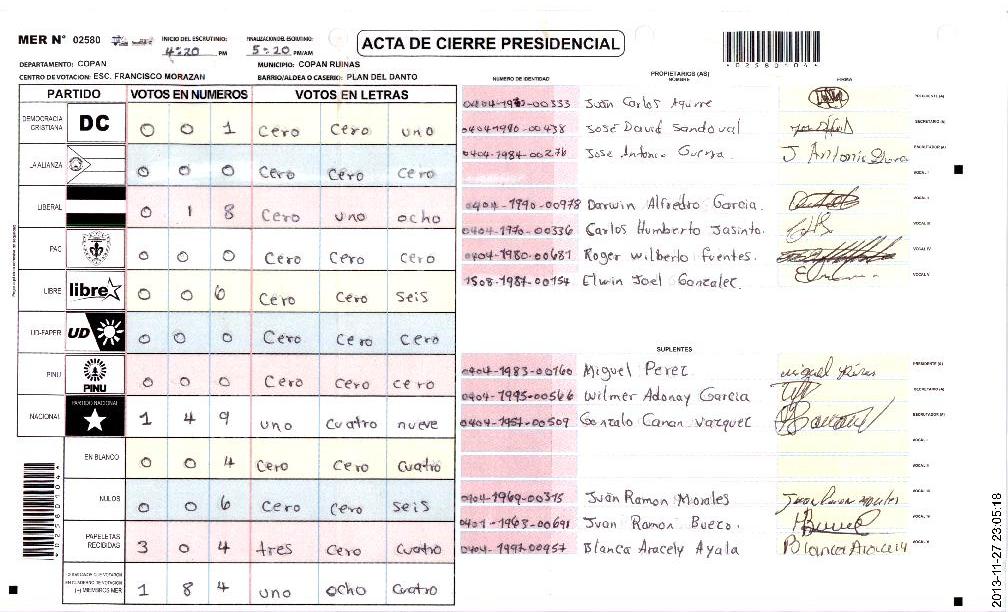 MER N° 02580
INICIO DEL ESCRUTINIO: 4:20 PM
FINALIZACION DEL ESCRUTINIO: 5:20 PM/AM
ACTA DE CIERRE PRESIDENCIAL
*02580104*
DEPARTAMENTO: COPAN
MUNICIPIO: COPAN RUINAS
CENTRO DE VOTACION: ESC. FRANCISCO MORAZAN
BARRIO/ALDEA O CASERIO: PLAN DEL DANTO
PARTIDO VOTOS EN NUMEROS VOTOS EN LETRAS
DEMOCRACIA CRISTIANA DC 0 0 1 Cero Cero uno
LA ALIANZA 0 0 0 Cero Cero Cero
LIBERAL 0 1 8 Cero uno ocho
PAC 0 0 0 Cero Cero cero
LIBRE libre 0 0 6 Cero Cero seis
UD-FAPER UD 0 0 0 Cero Cero cero
PINU PINU 0 0 0 Cero Cero cero
NACIONAL PARTIDO NACIONAL 1 4 9 uno cuatro nueve
EN BLANCO 0 0 4 Cero Cero cuatro
NULOS 0 0 6 Cero Cero seis
PAPELETAS RECIBIDAS 3 0 4 tres Cero Cuatro
(+) MIEMBROS MER 1 8 4 uno ocho Cuatro
*02580104*
PROPIETARIOS (AS)
NUMERO DE IDENTIDAD NOMBRE FIRMA
Juan Carlos Aguirre PRESIDENTE (A)
0404-1980-00438 José David Sandoval SECRETARIO (A)
0404-1984-00276 Jose Antonio Guerra J Antonio Guerra ESCRUTADOR (A)
VOCAL I
0404-1990-00978 Darwin Alfredo Garcia. VOCAL II
0404-1970-00336 Carlos Humberto Jasinto. VOCAL III
0404-1980-00681 Roger Wilberto Fuentes. VOCAL IV
1508-1987-00154 Elwin Joel Gonzalez. VOCAL V
SUPLENTES
0404-1983-00160 Miguel Perez miguel Pérez PRESIDENTE (A)
0404-1995-00566 Wilmer Adonay Garcia SECRETARIO (A)
0404-1957-00509 Gonzalo Canan Vazquez ESCRUTADOR (A)
VOCAL I
VOCAL II
0404-1969-00315 Juan Ramon Morales Juan Ramon Morales VOCAL III
0401-1963-00691 Juan Ramon Bueso. VOCAL IV
0404-1997-00957 Blanca Aracely Ayala Blanca Aracely VOCAL V
2013-11-27 23:05:18